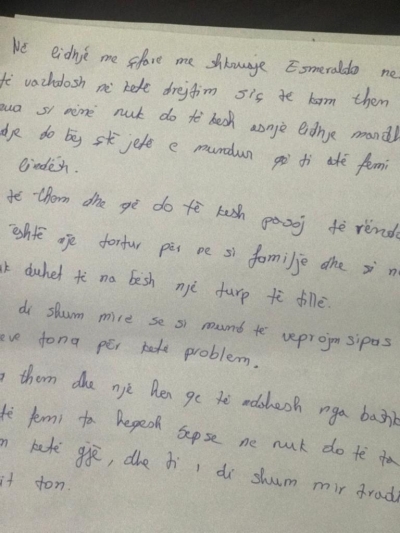 Në lidhje me çfare me shkruaje Esmeralda ne
të vazhdosh në këte drejtim siç te kam them
si nënë nuk do të kesh asnjë lidhje
do bej çtë jetë e mundur që ti atë femi
të them dhe që do të kesh pasoj të rënda
është nje tortur për ne si familje dhe si
duhet të na bësh një turp të tillë.
di shum mirë se si mund të veprojm sipas
tona për kete problem.
them dhe një her qe të
të femi ta heqesh sepse ne nuk do të ta
kete gjë, dhe ti, di shum mir
ton.